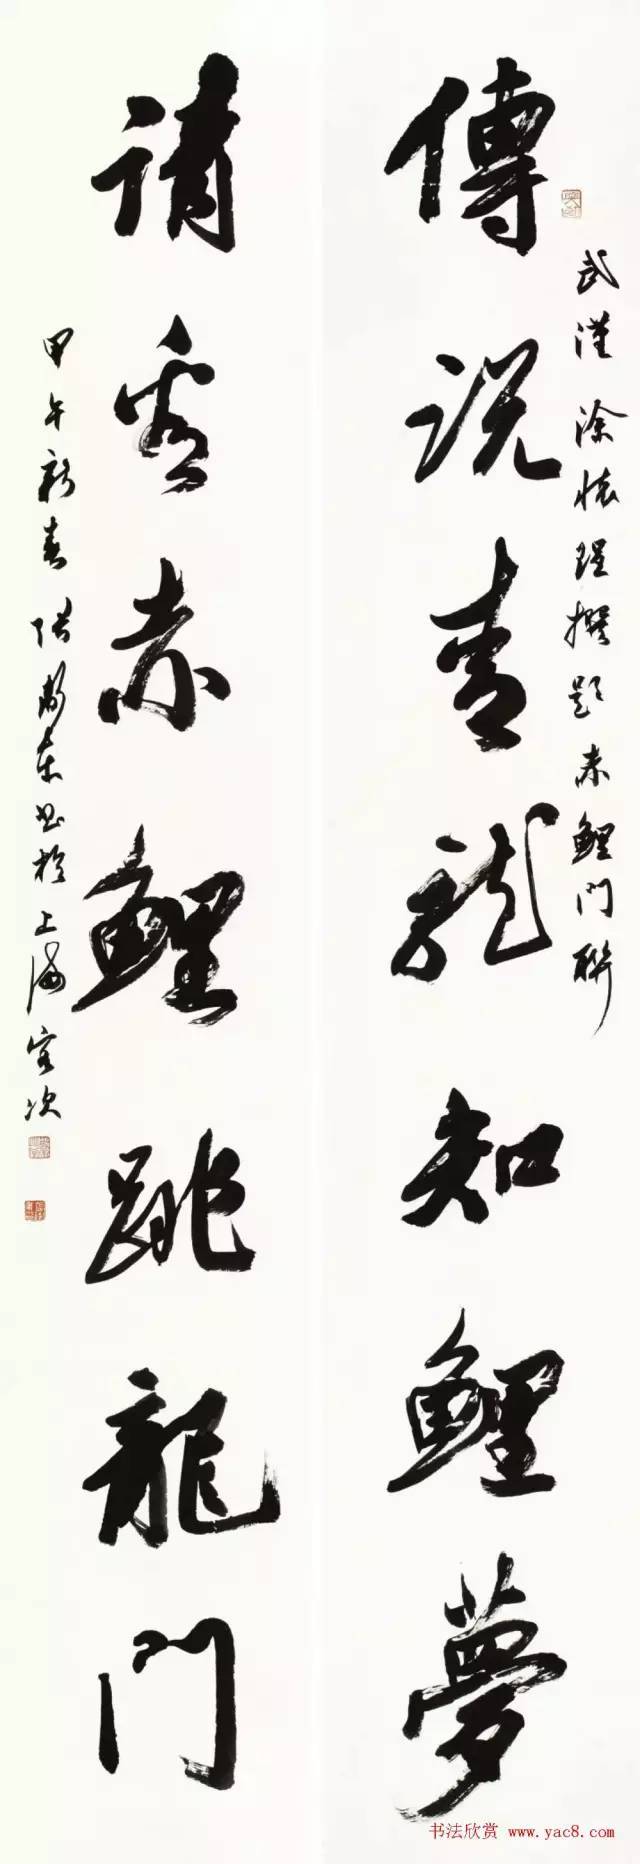 武漢涂懷珵撰題赤鯉門聯
傳説青龍知鯉夢
請看赤鯉跳龍門
甲午新春張爾東書於上海客次
书法欣赏 www.yac8.com